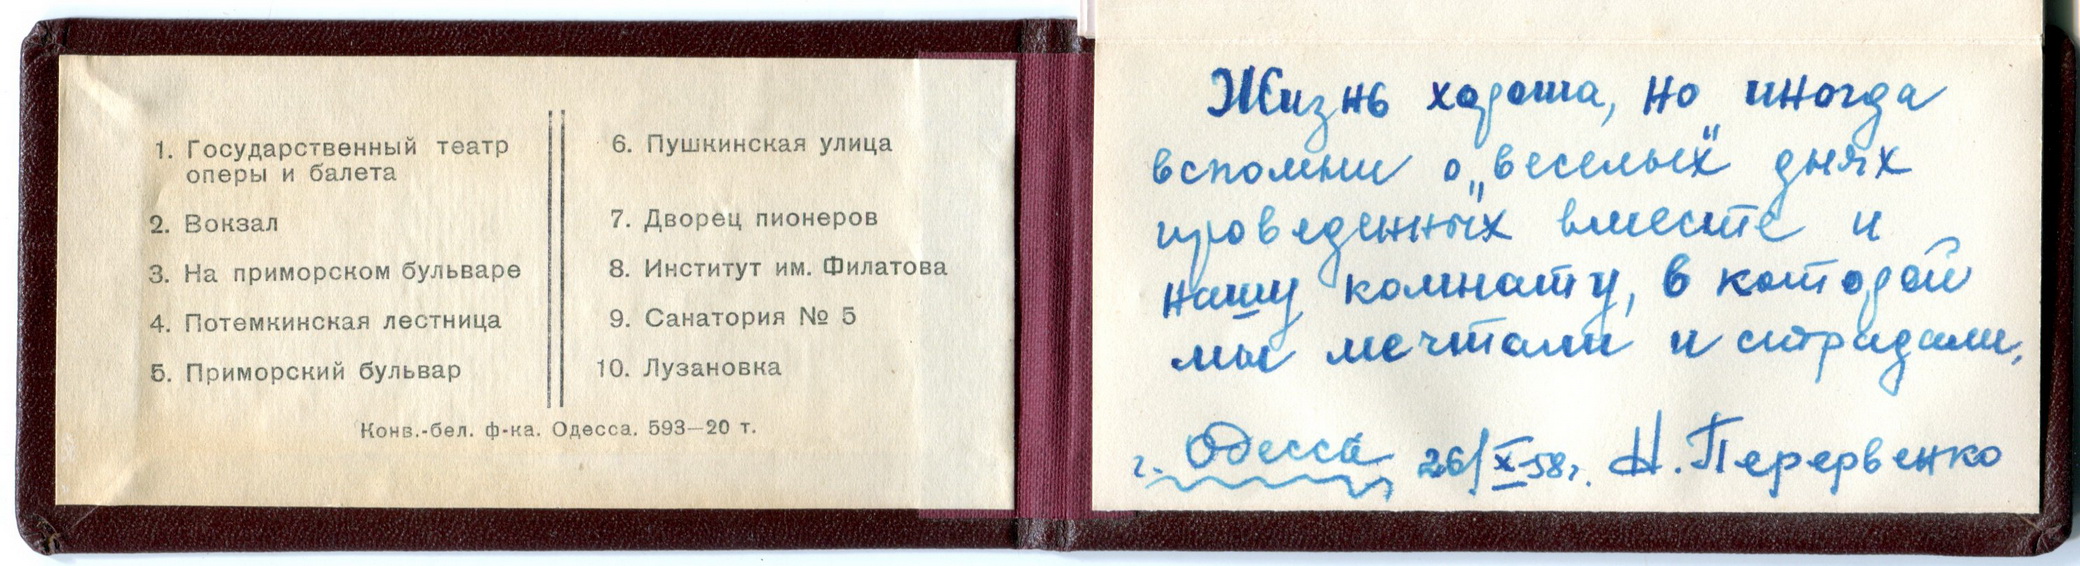 1. Государственный театр
оперы и балета
2. Вокзал
3. На приморском бульваре
4. Потемкинская лестница
5. Приморский бульвар
6. Пушкинская улица
7. Дворец пионеров
8. Институт им. Филатова
9. Санатория № 5
10. Лузановка
Конв.-бел. ф-ка. Одесса. 593—20 т.
Жизнь хороша, но иногда
вспомни о „веселых" днях
проведенных вместе и
нашу комнату, в которой
мы мечтали и страдали,
г. Одесса 26/X-58г. Н. Перервенко